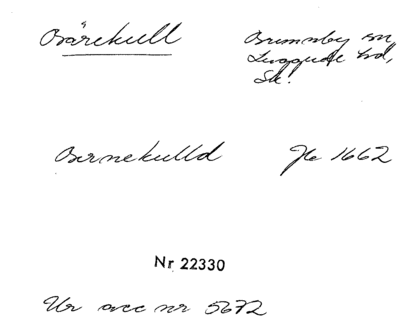 Bärekull
Brunnby sn,
Luggude hd,
Sk.
Bernekulld Jb 1662
Nr 22330
Ur acc nr 5672